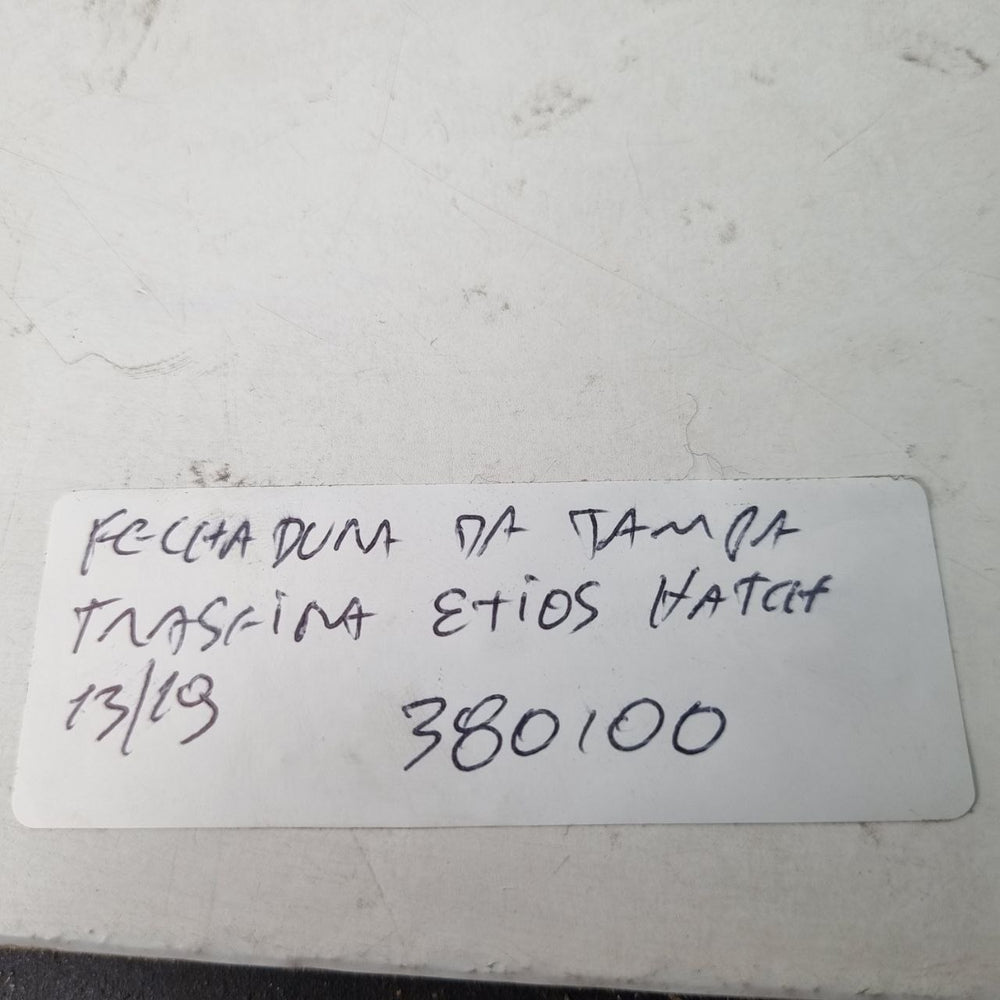 FECHADURA DA TAMPA
TRASEIRA ETIOS HATCH
13/19 380,00